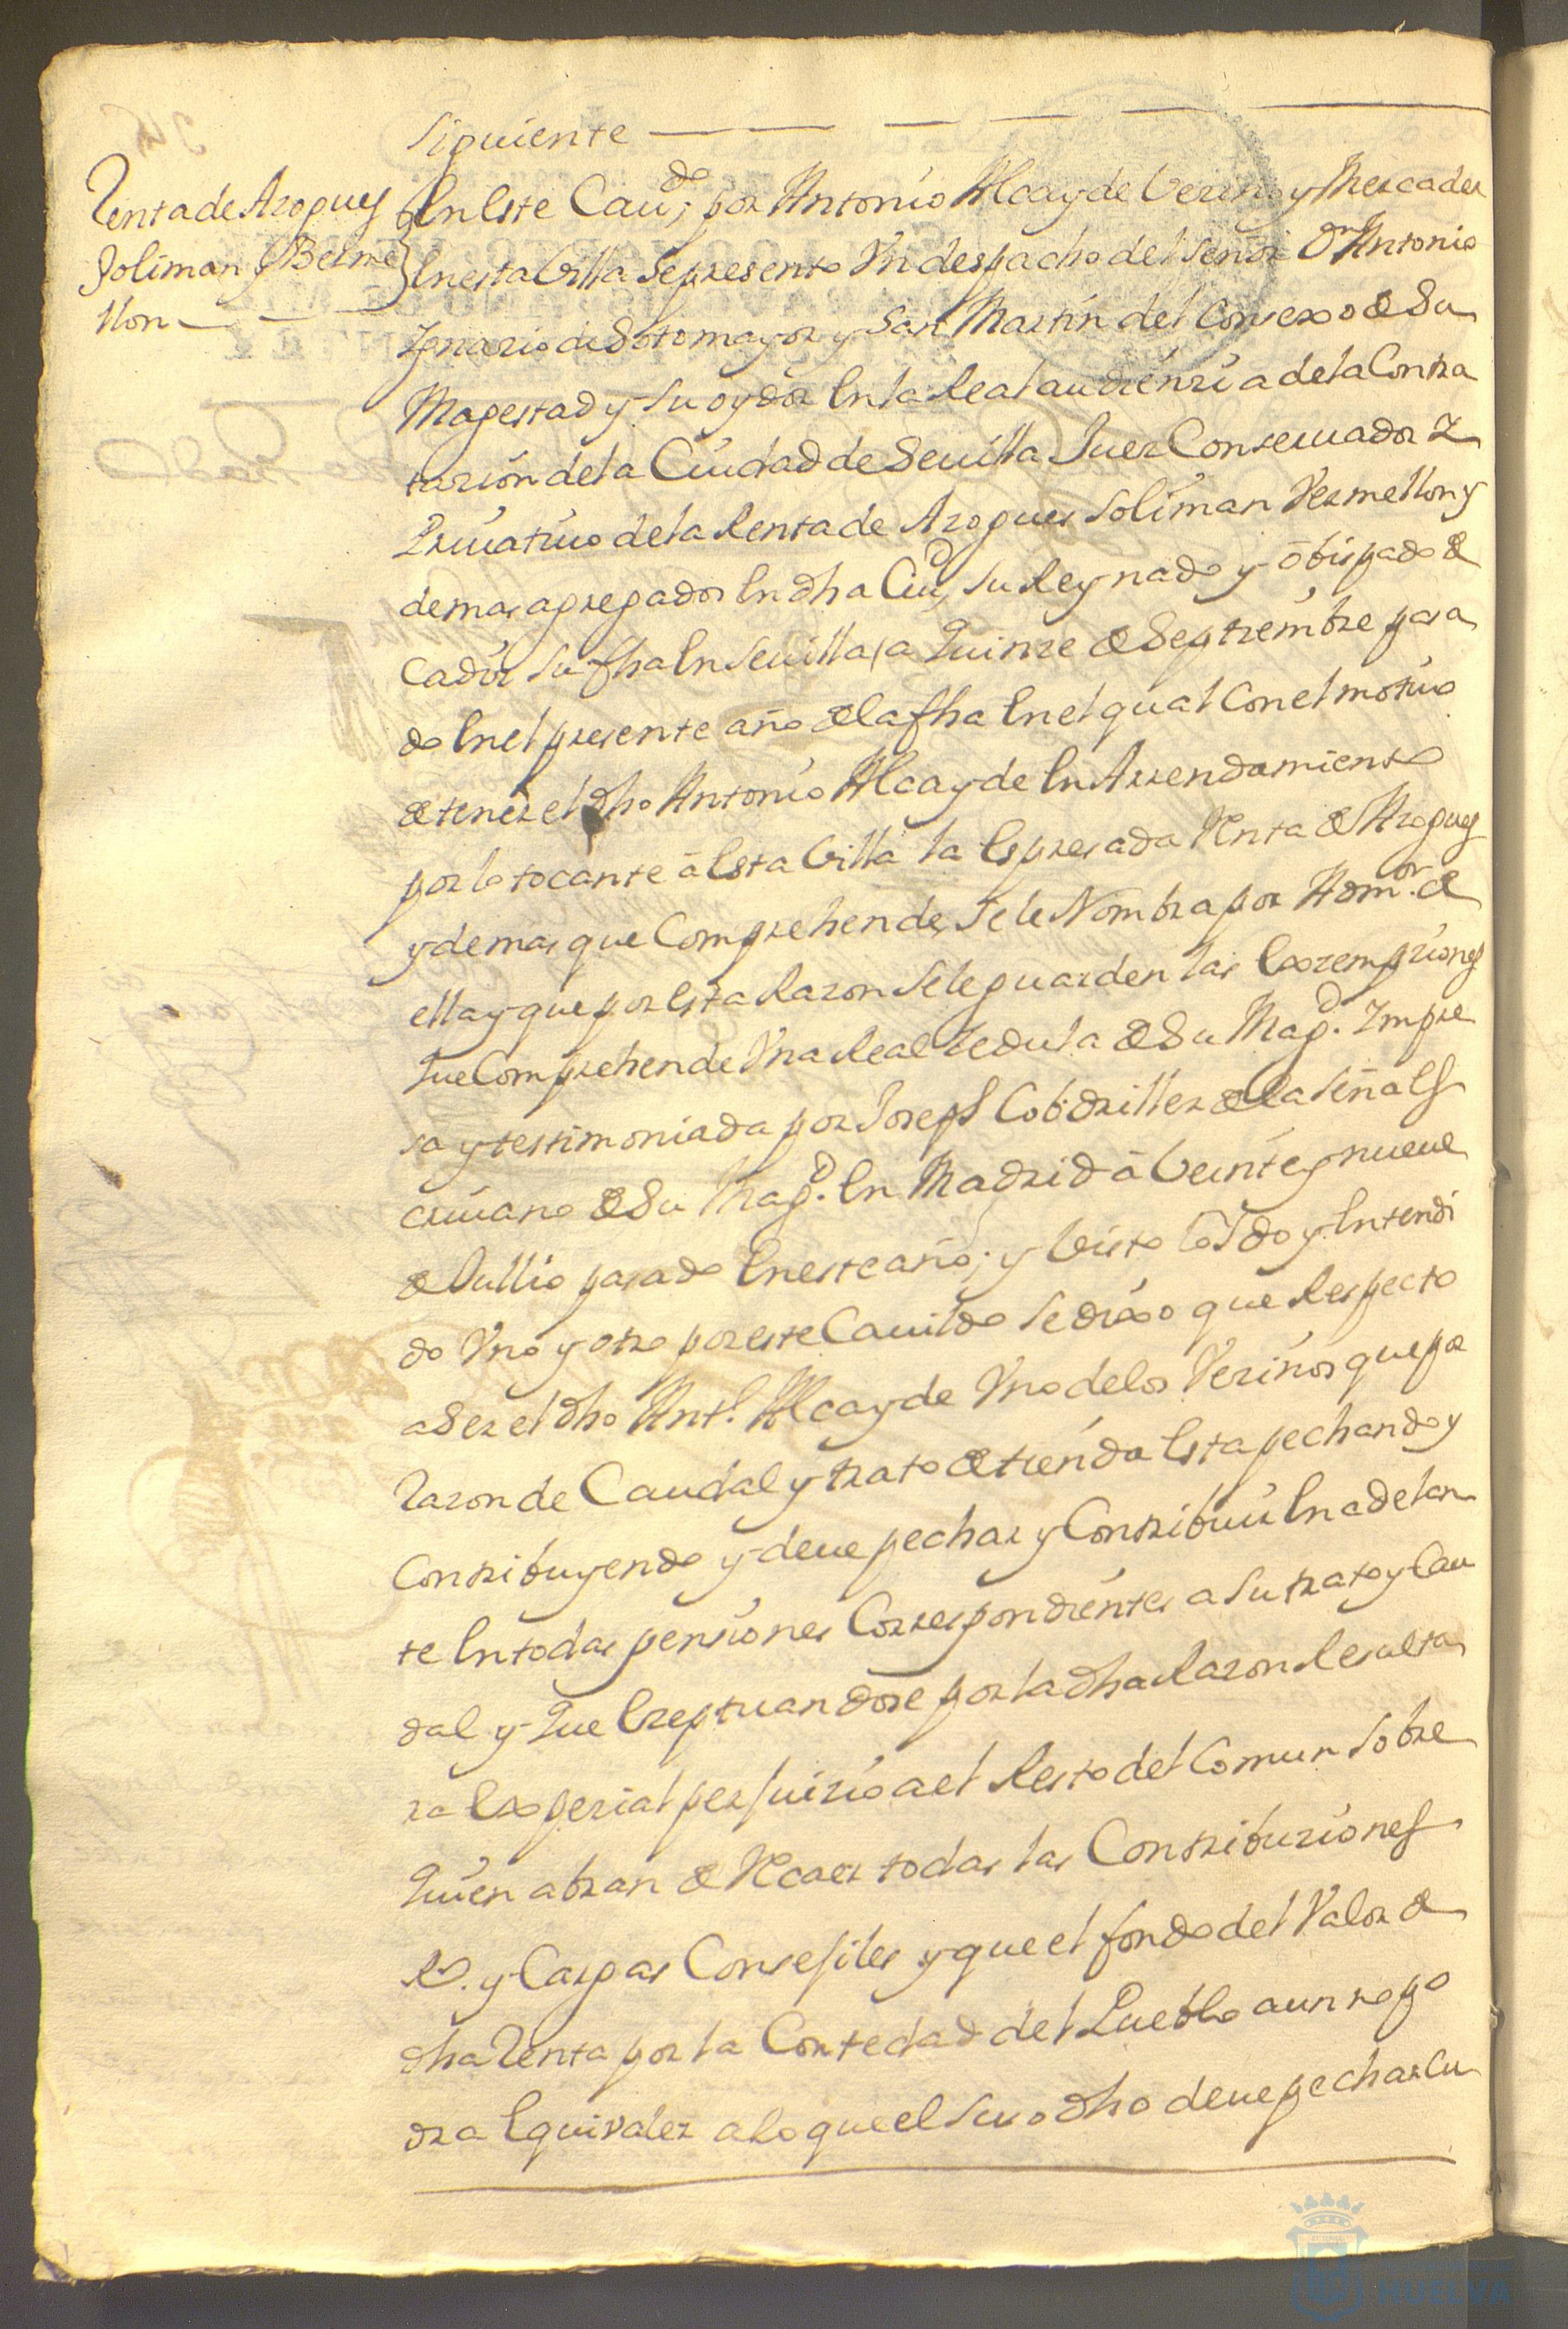 siguiente
Renta de Azogues
Soliman y Berme
llon
En este Cauᵈᵒ; por Antonio Alcayde Vezino y Mercader
en esta Villa se presento Vn despacho del Señor Dⁿ Antonio
Ygnazio de Sotomayor y San Martin del Consexo de Su
Magestad y su oydor en la Real audienzia de la Contra
tazion de la Ciudad de Seuilla Juez Conseruador
Priuatiuo de la Renta de Azogues Soliman Vermellon y
demas agregados en dha Ciuᵈ, su Reynado y obispado de
Cadiz su fha en Seuilla a quinze de Septiembre pasa
do en el presente año de la fha en el qual Con el motiuo
de tener el dho Antonio Alcayde en Arrendamiento
por lo tocante â esta Villa la espresada Renta de Azogues
y demas que Comprehende, se le Nombra por Admᵒʳ. de
ella y que por esta Razon se le guarden las exzempziones
que Comprehende Vna Real zedula de Su Magᵈ. Impre
sa y testimoniada por Joseph Cobdriller de la Peña es
criuano de Su Magᵈ. en Madrid â Veinte y nueue
de Jullio pasado en este año; y Visto oydo y entendi
do Vno y otro por este Cauildo se dixo que Respecto
a Ser el dho Antᵒ. Alcayde Vno de los Vezinos que por
razon de Caudal y trato de tienda esta pechando y
Contribuyendo y deue pechar y Contribuir en adelan
te en todas pensiones Correspondientes a su trato y Cau
dal y que exeptuandose por la dha Razon Resulta
ra espezial perjuizio a el Resto del Comun sobre
quien abran de Recaer todas las Contribuziones
Rˢ. y Cargas Consejiles y que el fondo del Valor de
dha Renta por la Cortedad del Pueblo aun no po
dra equivaler a lo que el suso dho deue pechar Cu
HUELVA